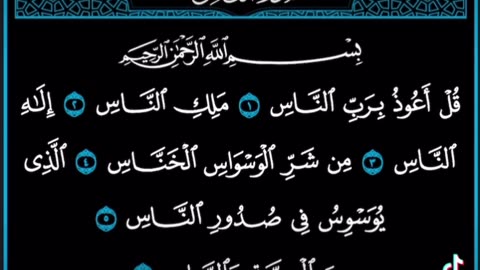 بِسْمِ ٱللَّهِ ٱلرَّحْمَٰنِ ٱلرَّحِيمِ
قُلْ أَعُوذُ بِرَبِّ ٱلنَّاسِ ١ مَلِكِ ٱلنَّاسِ ٢ إِلَٰهِ
ٱلنَّاسِ ٣ مِن شَرِّ ٱلْوَسْوَاسِ ٱلْخَنَّاسِ ٤ ٱلَّذِى
يُوَسْوِسُ فِى صُدُورِ ٱلنَّاسِ ٥